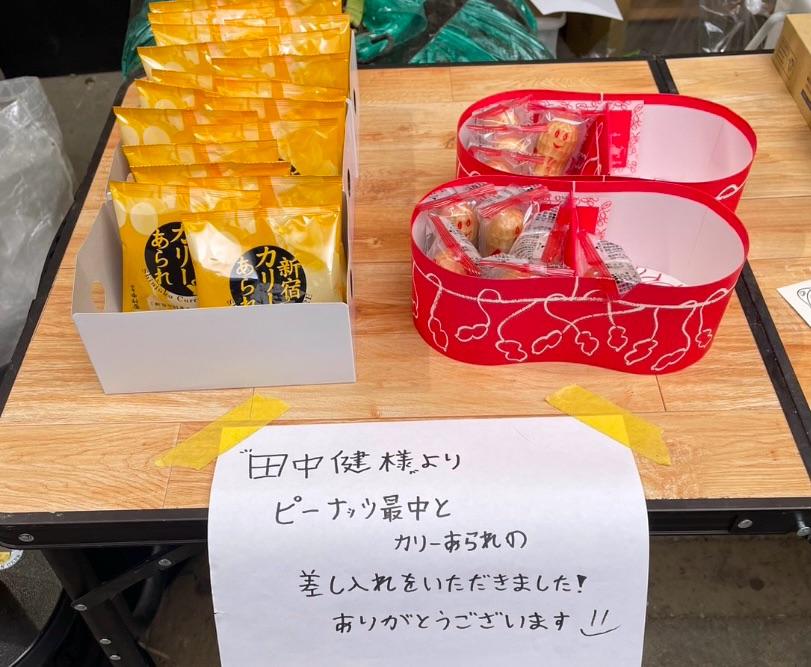 カリー
あられ
新宿
カリー
あられ
"田中健様"より
ピーナッツ最中と
カリーあられの
差し入れをいただきました!
ありがとうございます